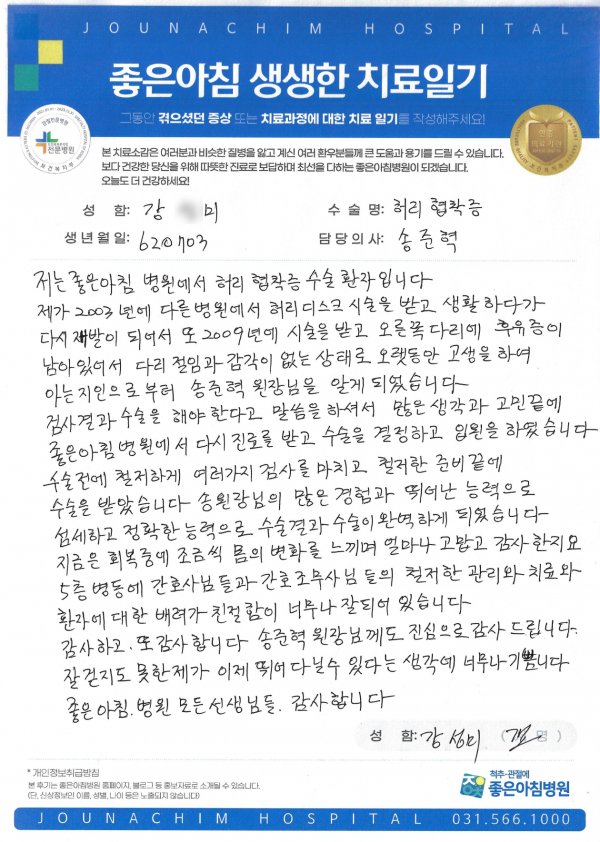 JOUNACHIM HOSPITAL
좋은아침 생생한 치료일기
그동안 겪으셨던 증상 또는 치료과정에 대한 치료 일기를 작성해주세요!
전문병원
보건복지부
본 치료소감은 여러분과 비슷한 질병을 앓고 계신 여러 환우분들께 큰 도움과 용기를 드릴 수 있습니다.
보다 건강한 당신을 위해 따뜻한 진료로 보답하며 최선을 다하는 좋은아침병원이 되겠습니다.
오늘도 더 건강하세요!
성 함: 강 미 수술명: 허리 협착증
생년월일: 620703 담당의사: 송준혁
저는 좋은아침 병원에서 허리 협착증 수술 환자입니다
제가 2003년에 다른병원에서 허리디스크 시술을 받고 생활하다가
다시 재발이 되어서 또 2009년에 시술을 받고 오른쪽다리에 후유증이
남아있어서 다리 절임과 감각이 없는 상태로 오랫동안 고생을 하여
아는지인으로 부터 송준혁 원장님을 알게되었습니다
검사결과 수술을 해야한다고 말씀을 하셔서 많은 생각과 고민끝에
좋은아침병원에서 다시진료를 받고 수술을 결정하고 입원을 하였습니다
수술전에 철저하게 여러가지 검사를 마치고 철저한 준비끝에
수술을 받았습니다 송원장님의 많은 경험과 뛰어난 능력으로
섬세하고 정확한 능력으로 수술결과 수술이 완벽하게 되었습니다
지금은 회복중에 조금씩 몸의 변화를 느끼며 얼마나 고맙고 감사한지요
5층 병동에 간호사님들과 간호조무사님들의 철저한 관리와 치료와
환자에 대한 배려가 친절함이 너무나 잘되어 있습니다
감사하고, 또감사합니다 송준혁 원장님께도 진심으로 감사드립니다.
잘걷지도 못한제가 이제 뛰어다닐수 있다는 생각에 너무나기쁩니다
좋은아침.병원 모든선생님들. 감사합니다
성 함: 강성미 (서명)
* 개인정보취급방침
본 후기는 좋은아침병원 홈페이지, 블로그 등 홍보자료로 소개될 수 있습니다.
(단, 신상정보인 이름, 성별, 나이 등은 노출되지 않습니다)
척추·관절에
좋은아침병원
JOUNACHIM HOSPITAL 031.566.1000